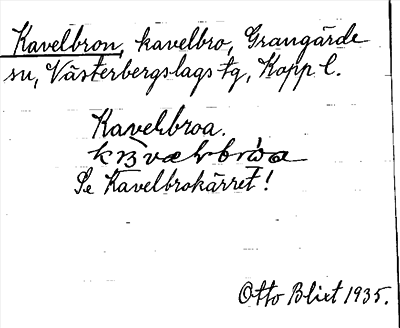 Kavelbron, kavelbro, Grangärde
sn, Västerbergslags tg, Kopp. l.
Kavelbroa.
Se Kavelbrokärret!
Otto Blixt 1935.